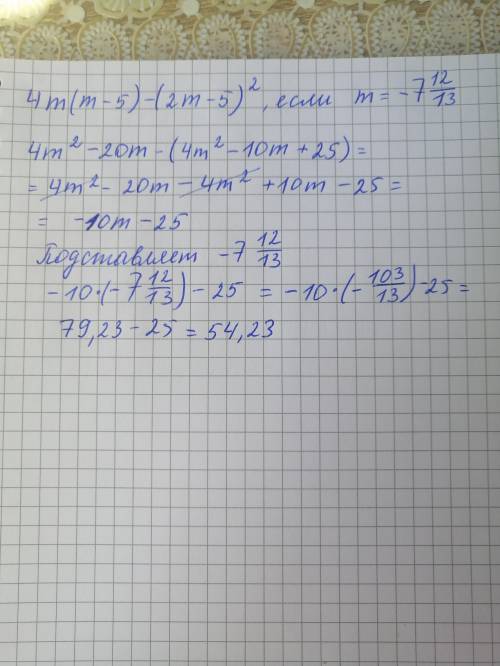 4m(m-5)-(2m-5)², если m=-7 12/13
4m²-20m-(4m²-10m+25)=
=4m²-20m-4m²+10m-25=
= -10m-25
Подставляет -7 12/13
-10·(-7 12/13)-25 = -10·(-103/13)-25=
79,23-25=54,23